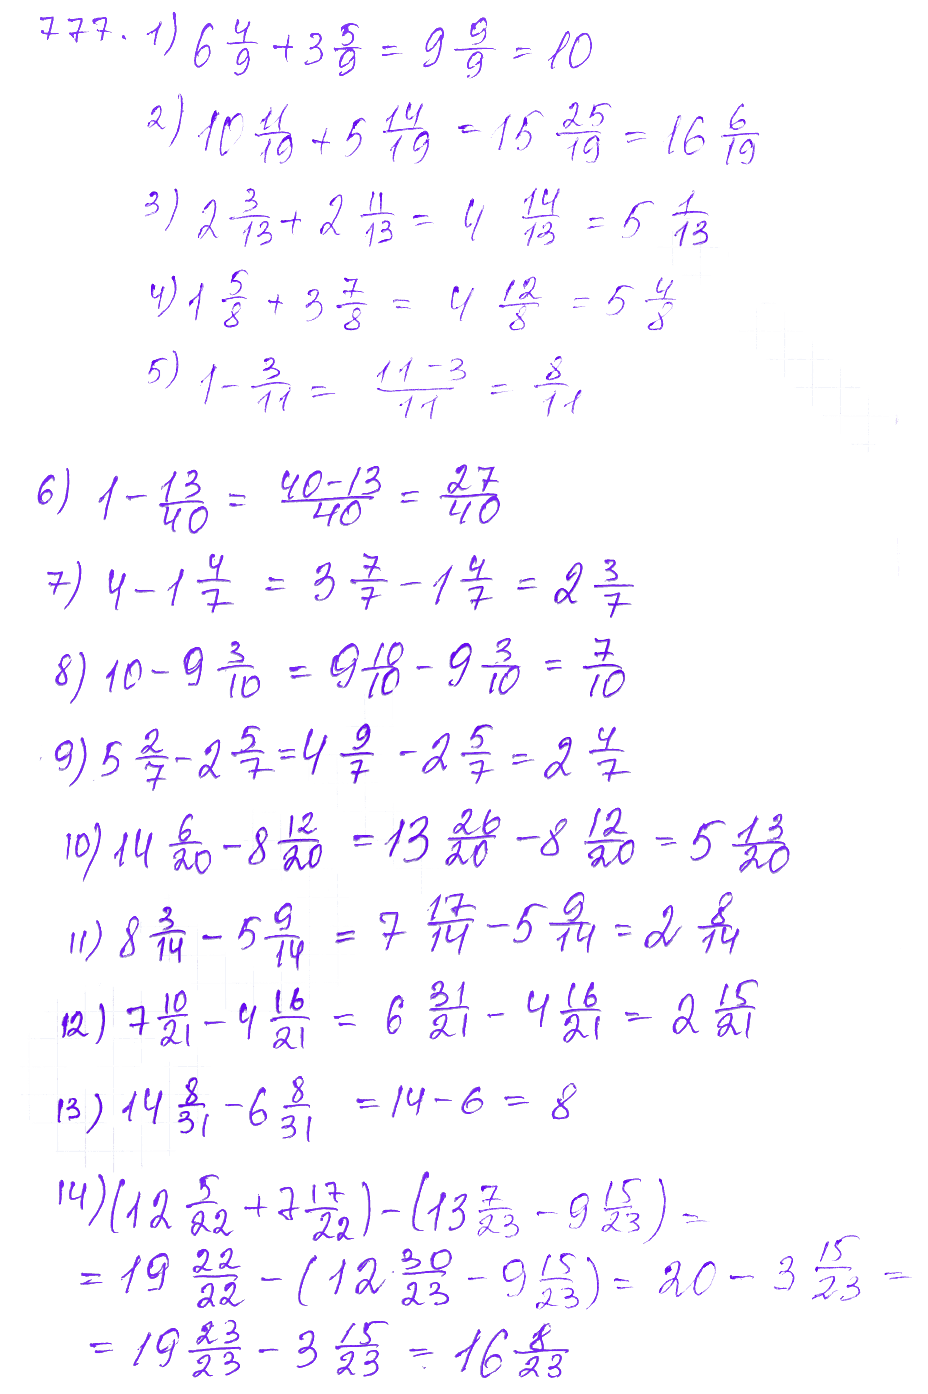 777. 1) 6 4/9 + 3 5/9 = 9 9/9 = 10
2) 10 11/19 + 5 14/19 = 15 25/19 = 16 6/19
3) 2 3/13 + 2 11/13 = 4 14/13 = 5 1/13
4) 1 5/8 + 3 7/8 = 4 12/8 = 5 4/8
5) 1 - 3/11 = (11-3)/11 = 8/11
6) 1 - 13/40 = (40-13)/40 = 27/40
7) 4 - 1 4/7 = 3 7/7 - 1 4/7 = 2 3/7
8) 10 - 9 3/10 = 9 10/10 - 9 3/10 = 7/10
9) 5 2/7 - 2 5/7 = 4 9/7 - 2 5/7 = 2 4/7
10) 14 6/20 - 8 12/20 = 13 26/20 - 8 12/20 = 5 13/20
11) 8 3/14 - 5 9/14 = 7 17/14 - 5 9/14 = 2 8/14
12) 7 10/21 - 4 16/21 = 6 31/21 - 4 16/21 = 2 15/21
13) 14 8/31 - 6 8/31 = 14 - 6 = 8
14) (12 5/22 + 7 17/22) - (13 7/23 - 9 15/23) =
= 19 22/22 - (12 30/23 - 9 15/23) = 20 - 3 15/23 =
= 19 23/23 - 3 15/23 = 16 8/23